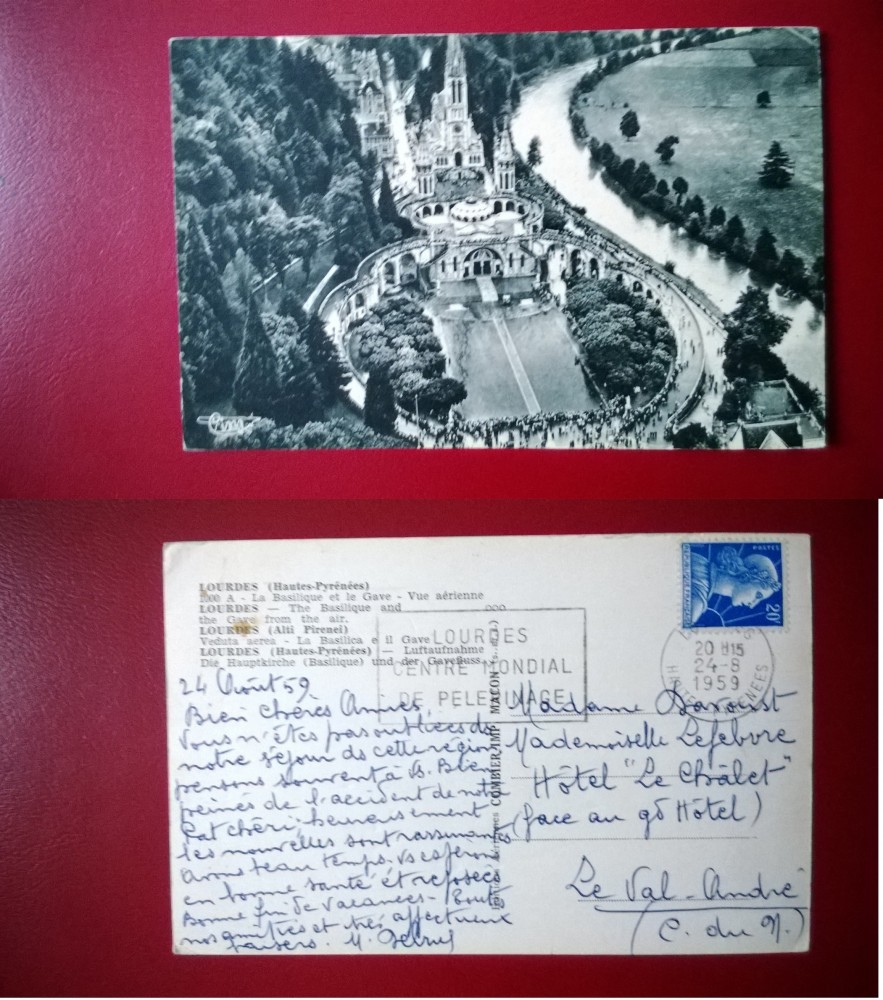 Cim
LOURDES (Hautes-Pyrénées)
1000 A - La Basilique et le Gave - Vue aérienne
LOURDES — The Basilique and
the Gave from the air.
LOURDES (Alti Pirenei)
Veduta aerea - La Basilica e il Gave
LOURDES (Hautes-Pyrénées) — Luftaufnahme
Die Hauptkirche (Basilique) und der Gavefluss
LOURDES
CENTRE MONDIAL
DE PELERINAGE
COMBIER IMP. MACON
POSTES
REPUBLIQUE FRANÇAISE
20F
20 H15
24-8
1959
24 Août 59
Bien chères Amies,
Vous n'êtes pas oubliées ds
notre séjour ds cette région
pensons souvent à Vs. Bien
peinés de l'accident de notre
Pat chéri, heureusement
les nouvelles sont rassurantes
avons beau temps. Vs espérons
en bonne santé et reposées
Bonne fin de vacances - Toutes
nos amitiés et très affectueux
baisers. M.
Madame
Mademoiselle Lefebvre
Hôtel "Le Châlet"
(face au gd Hôtel)
Le Val-André
(C. du N.)